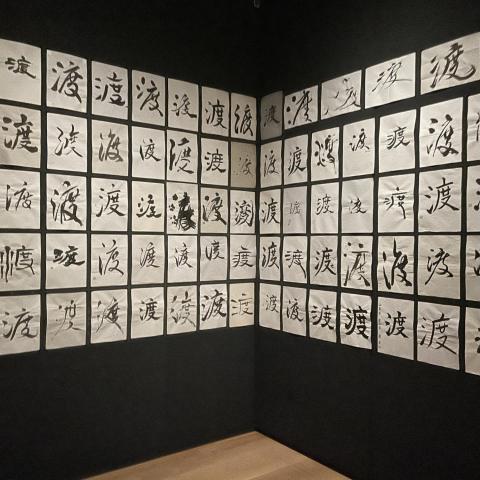 渡渡渡渡渡渡渡渡渡渡渡渡
渡渡渡渡渡渡渡渡渡渡渡渡渡
渡渡渡渡渡渡渡渡渡渡渡渡渡
渡渡渡渡渡渡渡渡渡渡渡渡渡
渡渡渡渡渡渡渡渡渡渡渡渡渡